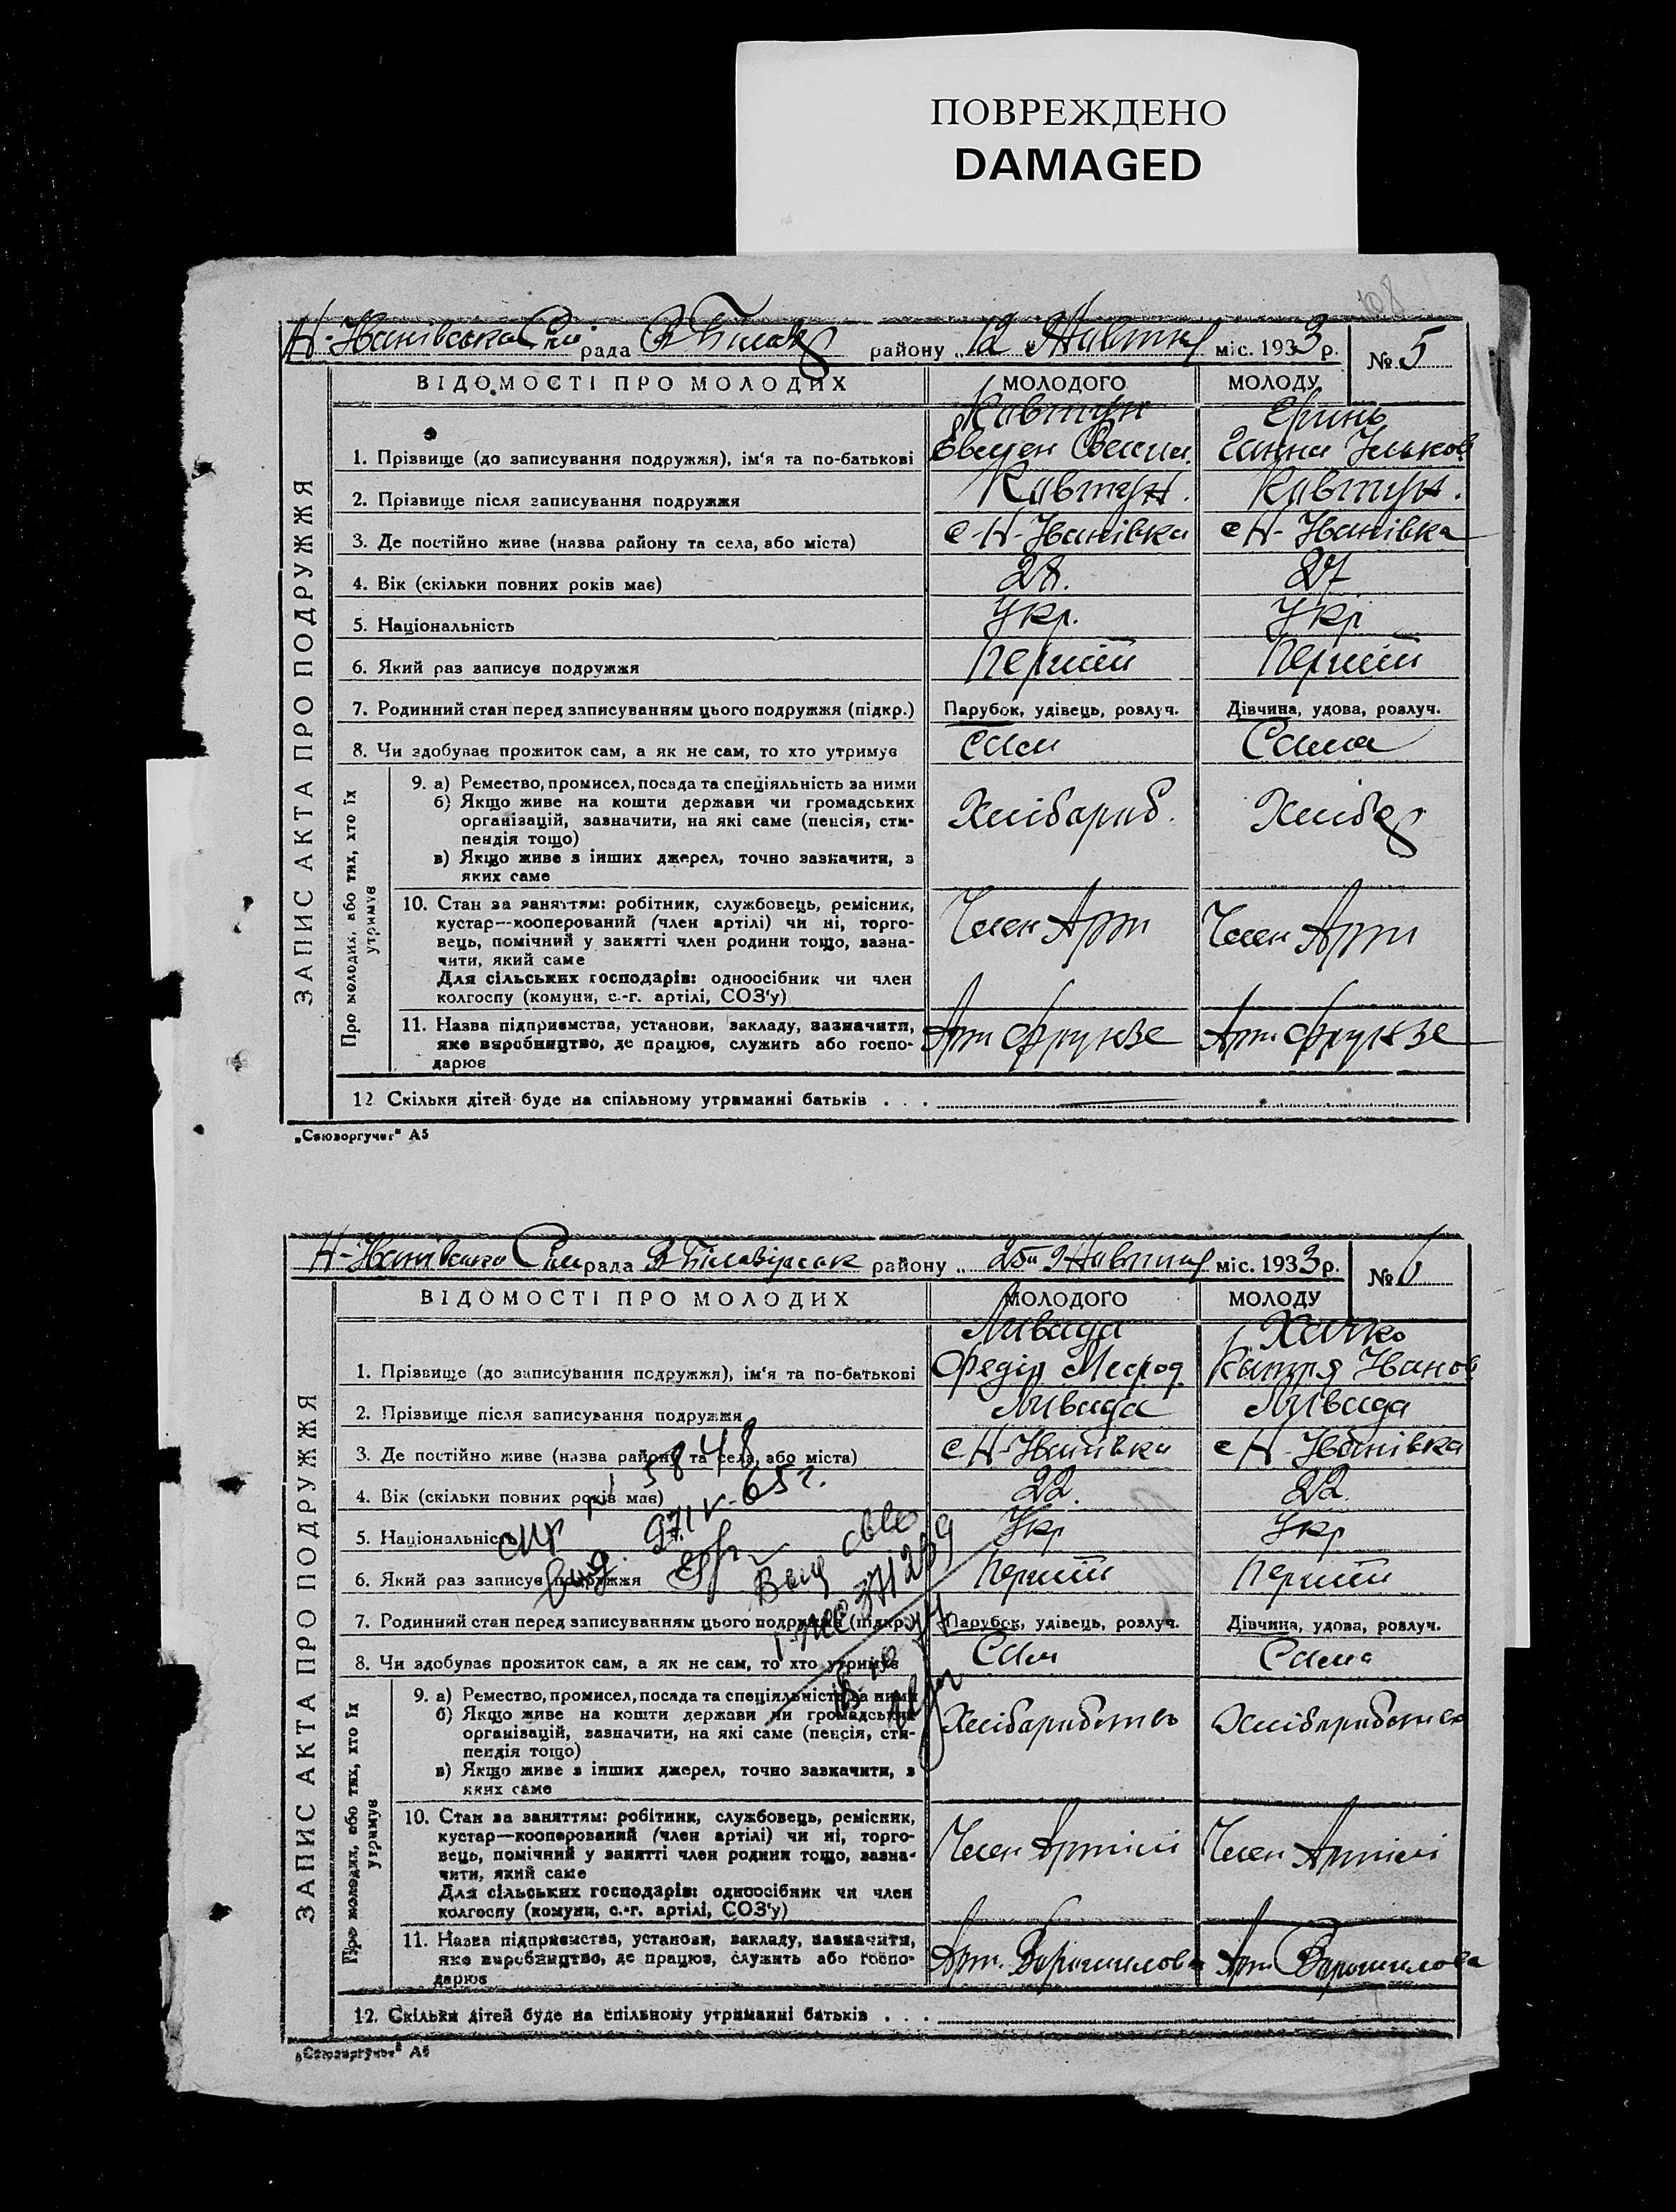 ПОВРЕЖДЕНО
DAMAGED
108
Н-Іванівська Сіль рада В Білоз району „12“ Жовтня міс. 1933 р. № 5
ЗАПИС АКТА ПРО ПОДРУЖЖЯ
ВІДОМОСТІ ПРО МОЛОДИХ МОЛОДОГО МОЛОДУ
Ковтун
1. Прізвище (до записування подружжя), ім‘я та по-батькові Ганна
2. Прізвище після записування подружжя Ковтун. Ковтун.
3. Де постійно живе (назва району та села, або міста) с-Н-Іванівка с Н-Іванівка
4. Вік (скільки повних років має) 28. 27
5. Національність Укр. Укр
6. Який раз записує подружжя Перший Перший
7. Родинний стан перед записуванням цього подружжя (підкр.) Парубок, удівець, розлуч. Дівчина, удова, розлуч.
8. Чи здобуває прожиток сам, а як не сам, то хто утримує Сам Сама
Про молодих, або тих, хто їх утримує
9. а) Ремество, промисел, посада та спеціяльність за ними
б) Якщо живе на кошти держави чи громадських
організацій, зазначити, на які саме (пенсія, сти-
пендія тощо)
в) Якщо живе з інших джерел, точно зазначити, з
яких саме
Хлібороб. Хлібор
10. Стан за заняттям: робітник, службовець, ремісник,
кустар—кооперований (член артілі) чи ні, торго-
вець, помічний у занятті член родини тощо, зазна-
чити, який саме
Для сільських господарів: одноосібник чи член
колгоспу (комуни, с.-г. артілі, СОЗ‘у)
Член Арт Член Арт
11. Назва підприємства, установи, закладу, зазначити,
яке виробництво, де працює, служить або госпо-
дарює
Арт Фрунзе Арт. Фрунзе
12 Скільки дітей буде на спільному утриманні батьків . . .
„Союзоргучет“ А5
Н-Іванівська Сіль рада району „25“ Жовтня міс. 1933 р. № 6
ЗАПИС АКТА ПРО ПОДРУЖЖЯ
ВІДОМОСТІ ПРО МОЛОДИХ МОЛОДОГО МОЛОДУ
Ливада
1. Прізвище (до записування подружжя), ім‘я та по-батькові Федір Мефод Катря Іванов
2. Прізвище після записування подружжя Ливада Ливада
3. Де постійно живе (назва району та села, або міста) с Н-Іванівка с Н-Іванівка
4. Вік (скільки повних років має) 22. 22
5. Національність Укр Укр
6. Який раз записує подружжя Перший Перший
7. Родинний стан перед записуванням цього подружжя (підкр.) Парубок, удівець, розлуч. Дівчина, удова, розлуч.
8. Чи здобуває прожиток сам, а як не сам, то хто утримує Сам Сама
Про молодих, або тих, хто їх утримує
9. а) Ремество, промисел, посада та спеціяльність за ними
б) Якщо живе на кошти держави чи громадських
організацій, зазначити, на які саме (пенсія, сти-
пендія тощо)
в) Якщо живе з інших джерел, точно зазначити, з
яких саме
Хлібаработсво
10. Стан за заняттям: робітник, службовець, ремісник,
кустар—кооперований (член артілі) чи ні, торго-
вець, помічний у занятті член родини тощо, зазна-
чити, який саме
Для сільських господарів: одноосібник чи член
колгоспу (комуни, с.-г. артілі, СОЗ‘у)
Член Артілі Член Артілі
11. Назва підприємства, установи, закладу, зазначити,
яке виробництво, де працює, служить або госпо-
дарює
Арт. Ворошилова Арт Ворошилова
12. Скільки дітей буде на спільному утриманні батьків . . .
„Союзоргучет“ А5